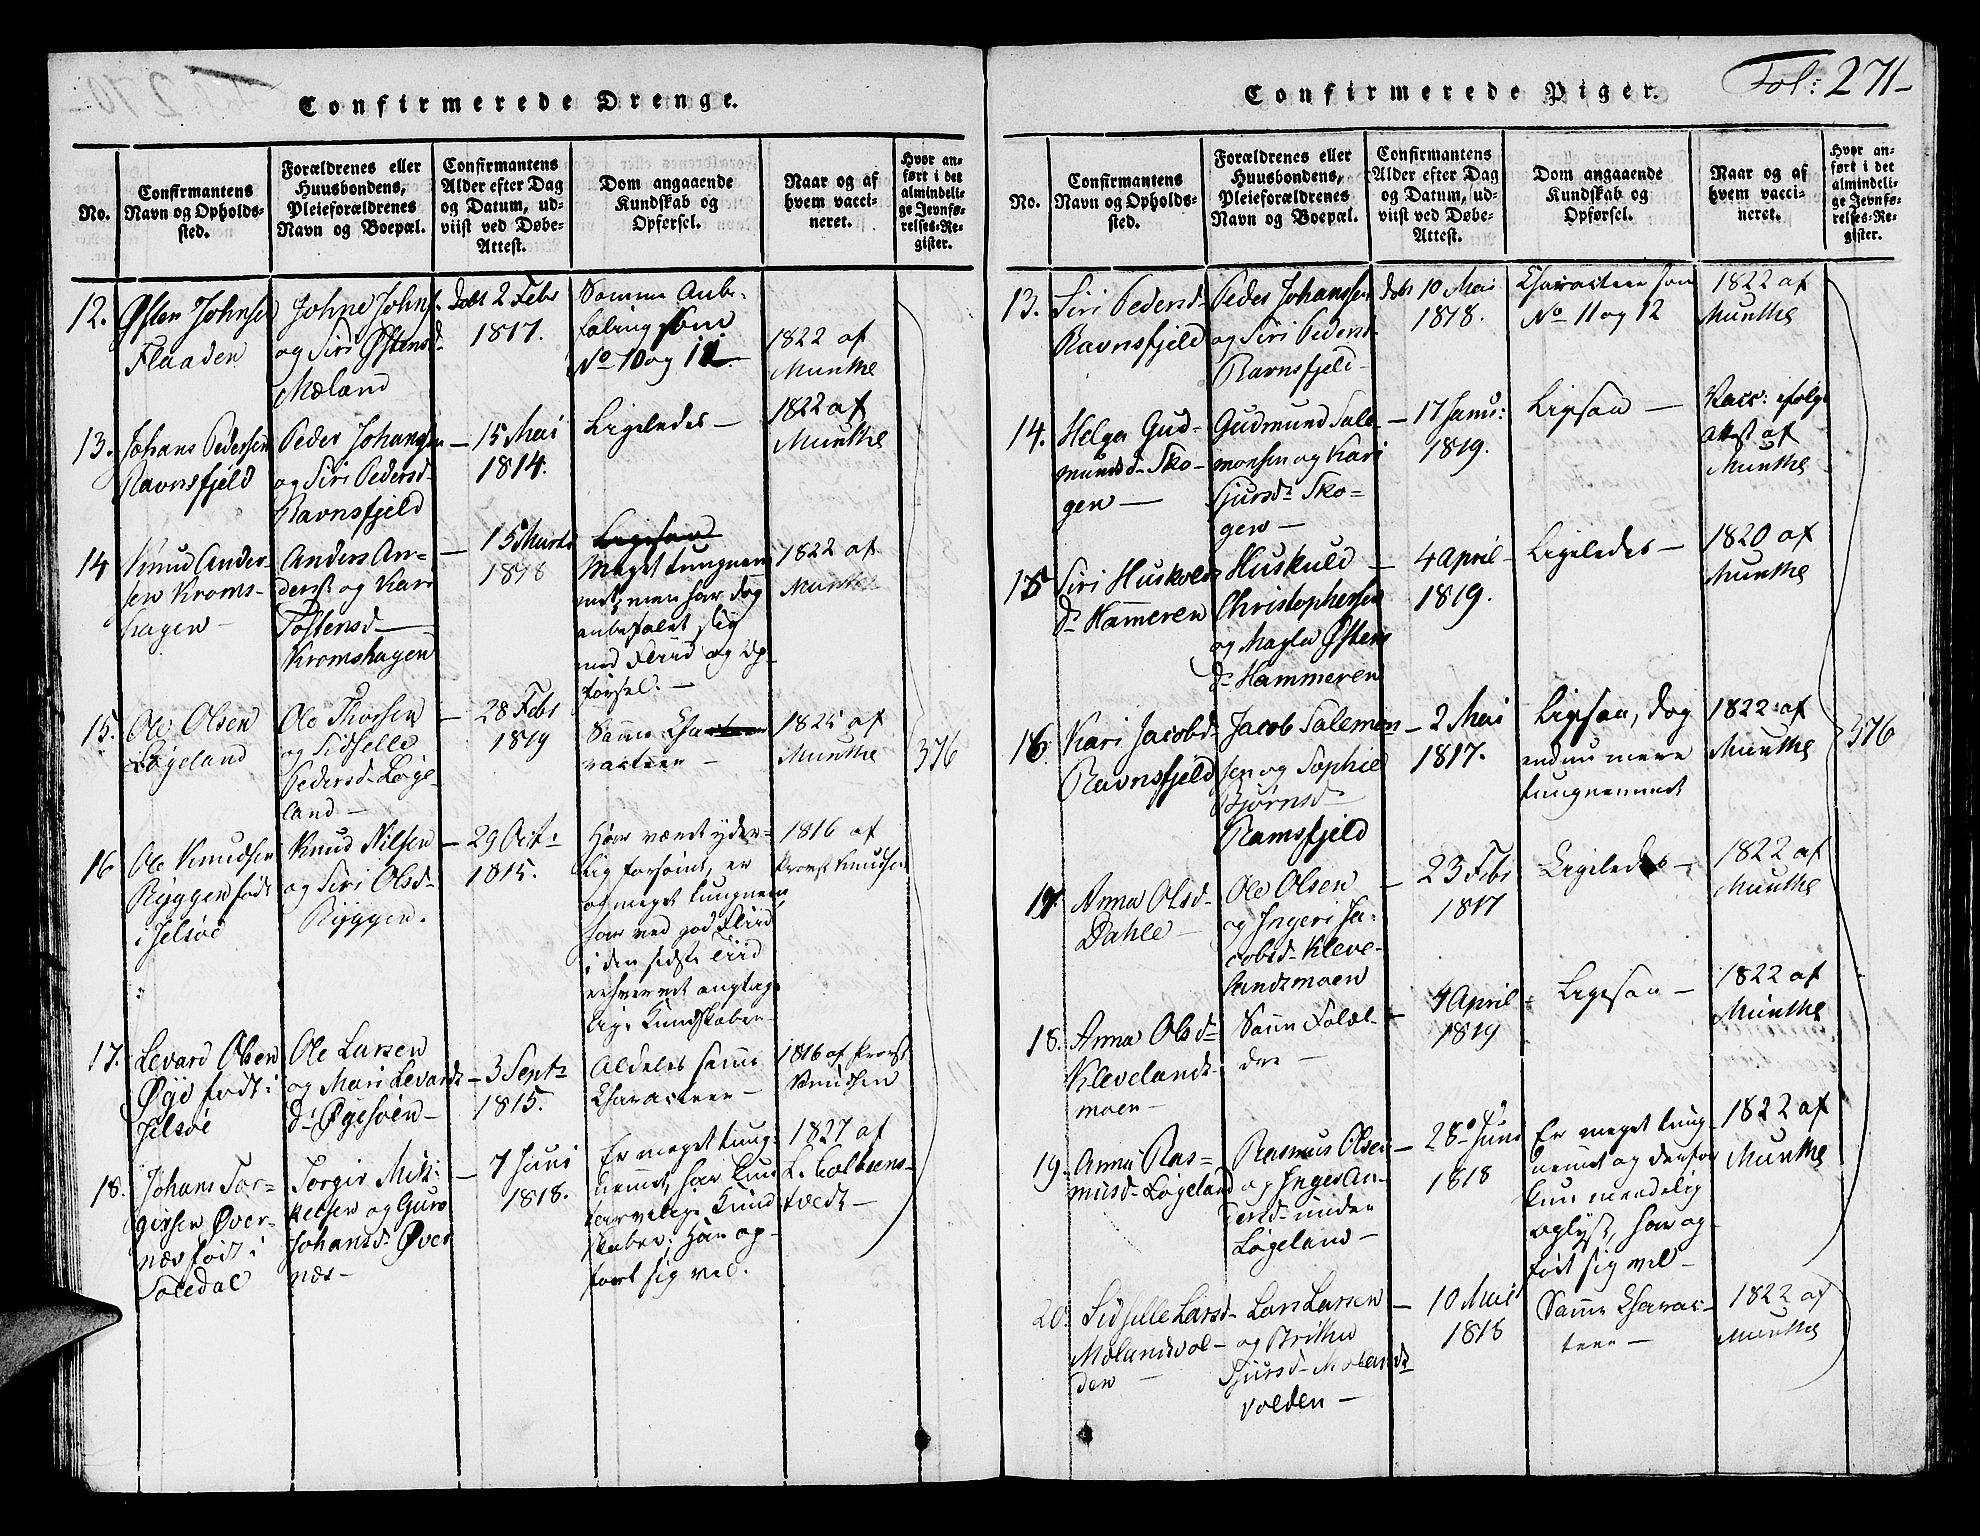 Fol: 271-
Confirmerede Drenge.
No.
Confirmantens
Navn og Opholds-
sted.
Forældrenes eller
Huusbondens,
Pleieforældrenes
Navn og Boepæl.
Confirmantens
Alder efter Dag
og Datum, ud-
viist ved Døbe-
Attest.
Dom angaaende
Kundskab og
Opførsel.
Naar og af
hvem vacci-
neret.
Hvor an-
ført i det
almindeli-
ge Jevnfø-
relses-Re-
gister.
12.
Østen Johnsen
Flaaden
Johne Johns.
og Siri Østensd.
Mæland
Døbt 2 Febr
1817.
Samme Anbe-
faling som
No 10 og 11
1822 af
Munthe
13.
Johans Pedersen
Ravnsfjeld
Peder Johansen
og Siri Pedersd-
Ravnsfjeld
— 15 Mai
1814.
Ligeledes —
1822 af
Munthe
14
Knud Ander-
sen Kroms-
hagen —
Anders An-
derss og Kari
Tostensd—
Kromshagen
— 15 Marts
1818
Ligesaa
Meget tungnem-
met, men har dog
anbefalet sig
med Fliid og Op-
førsel. —
1822 af
Munthe
15.
Ole Olsen
Løgeland
Ole Thorsen
og Sidselle
Pedersd- Løge-
land —
— 28 Febr
1819
Samme Cha
racteer —
1825 af
Munthe
376
16
Ole Knudsen
Ryggen født
i Jelsøe
Knud Nilsen
og Siri Olsd-
Ryggen.
— 29 Oct:
1815.
Har været yder-
lig forsømt, er
og meget tungnem,
har ved god Fliid
i den sidste Tiid
erhvervet antage-
lige Kundskaber —
1816 af
Provst Knudsen
17.
Levard Olsen
Øye født i
Jelsøe
Ole Larsen
og Mari Levards
d: Øgesøen —
— 3 Septr
1815.
Aldeles samme
Characteer —
1816 af Provst
Knudsen
18.
Johans Tor-
gersen Øver-
næs født i
Soledal
Torgir Mik-
kelsen og Guro
Johansd: Øver
næs —
— 7 Juni
1818.
Er meget tung-
nemmet, har kun
tarvelige Kund
skaber; Har op-
ført sig vel.
1827 af
L. Colbiens-
tvedt —
Confirmerede Piger.
No.
Confirmantens
Navn og Opholds-
sted.
Forældrenes eller
Huusbondens,
Pleieforældrenes
Navn og Boepæl.
Confirmantens
Alder efter Dag
og Datum, ud-
viist ved Døbe-
Attest.
Dom angaaende
Kundskab og
Opførsel.
Naar og af
hvem vacci-
neret.
Hvor an-
ført i det
almindeli-
ge Jevnfø-
relses-Re-
gister.
13.
Siri Pedersd-
Ravnsfjeld
Peder Johanssen
og Siri Pedersd-
Ravnsfjeld —
døbt 10 Mai
1818.
Characteer som
No 11 og 12
1822 af
Munthe
14.
Helga Gud-
mundsd- Sko-
gen —
Gudmund Sale-
monsen og Kari
Sjursd: Sko-
gen —
— 17 Janu:
1819.
Ligesaa —
Vacc: ifølge
Attest af
Munthe
15
Siri Huskolds
d: Hammeren
Huskuld
Christophersen
og Magla Østens
d: Hammeren
— 4 April
1819.
Ligeledes —
1820 af
Munthe
16
Kari Jacobsd-
Ravnsfjeld
Jacob Salemon-
sen og Sophie
Bjørnsd—
Ramsfjeld
— 2 Mai
1817.
Ligesaa, dog
endnu mere
tungnemmet
1822 af
Munthe
376
17
Anna Olsd-
Dahle —
Ole Olsen
og Ingeri Ja-
cobsd- Kleve-
landsmoen
— 23 Febr
1817
Ligeledes —
1822 af
Munthe
18.
Anna Olsd-
Klevelands-
moen —
Samme Foræl-
dre —
— 4 April
1819
Ligesaa —
1822 af
Munthe
19.
Anna Ras-
musd- Løgeland
Rasmus Olsen
og Inger
Løgeland —
— 28 Juni
1818
Er meget tung-
nemmet og derfor
kun maadelig
oplyst, har op-
ført sig vel —
1822 af
Munthe
20.
Sidselle Larsd-
Molandsvol-
den —
Lars Larsen
og Brithe
Sjursd- Molands-
volden —
— 10 Mai
1818
Samme Charac-
teer —
1822 af
Munthe